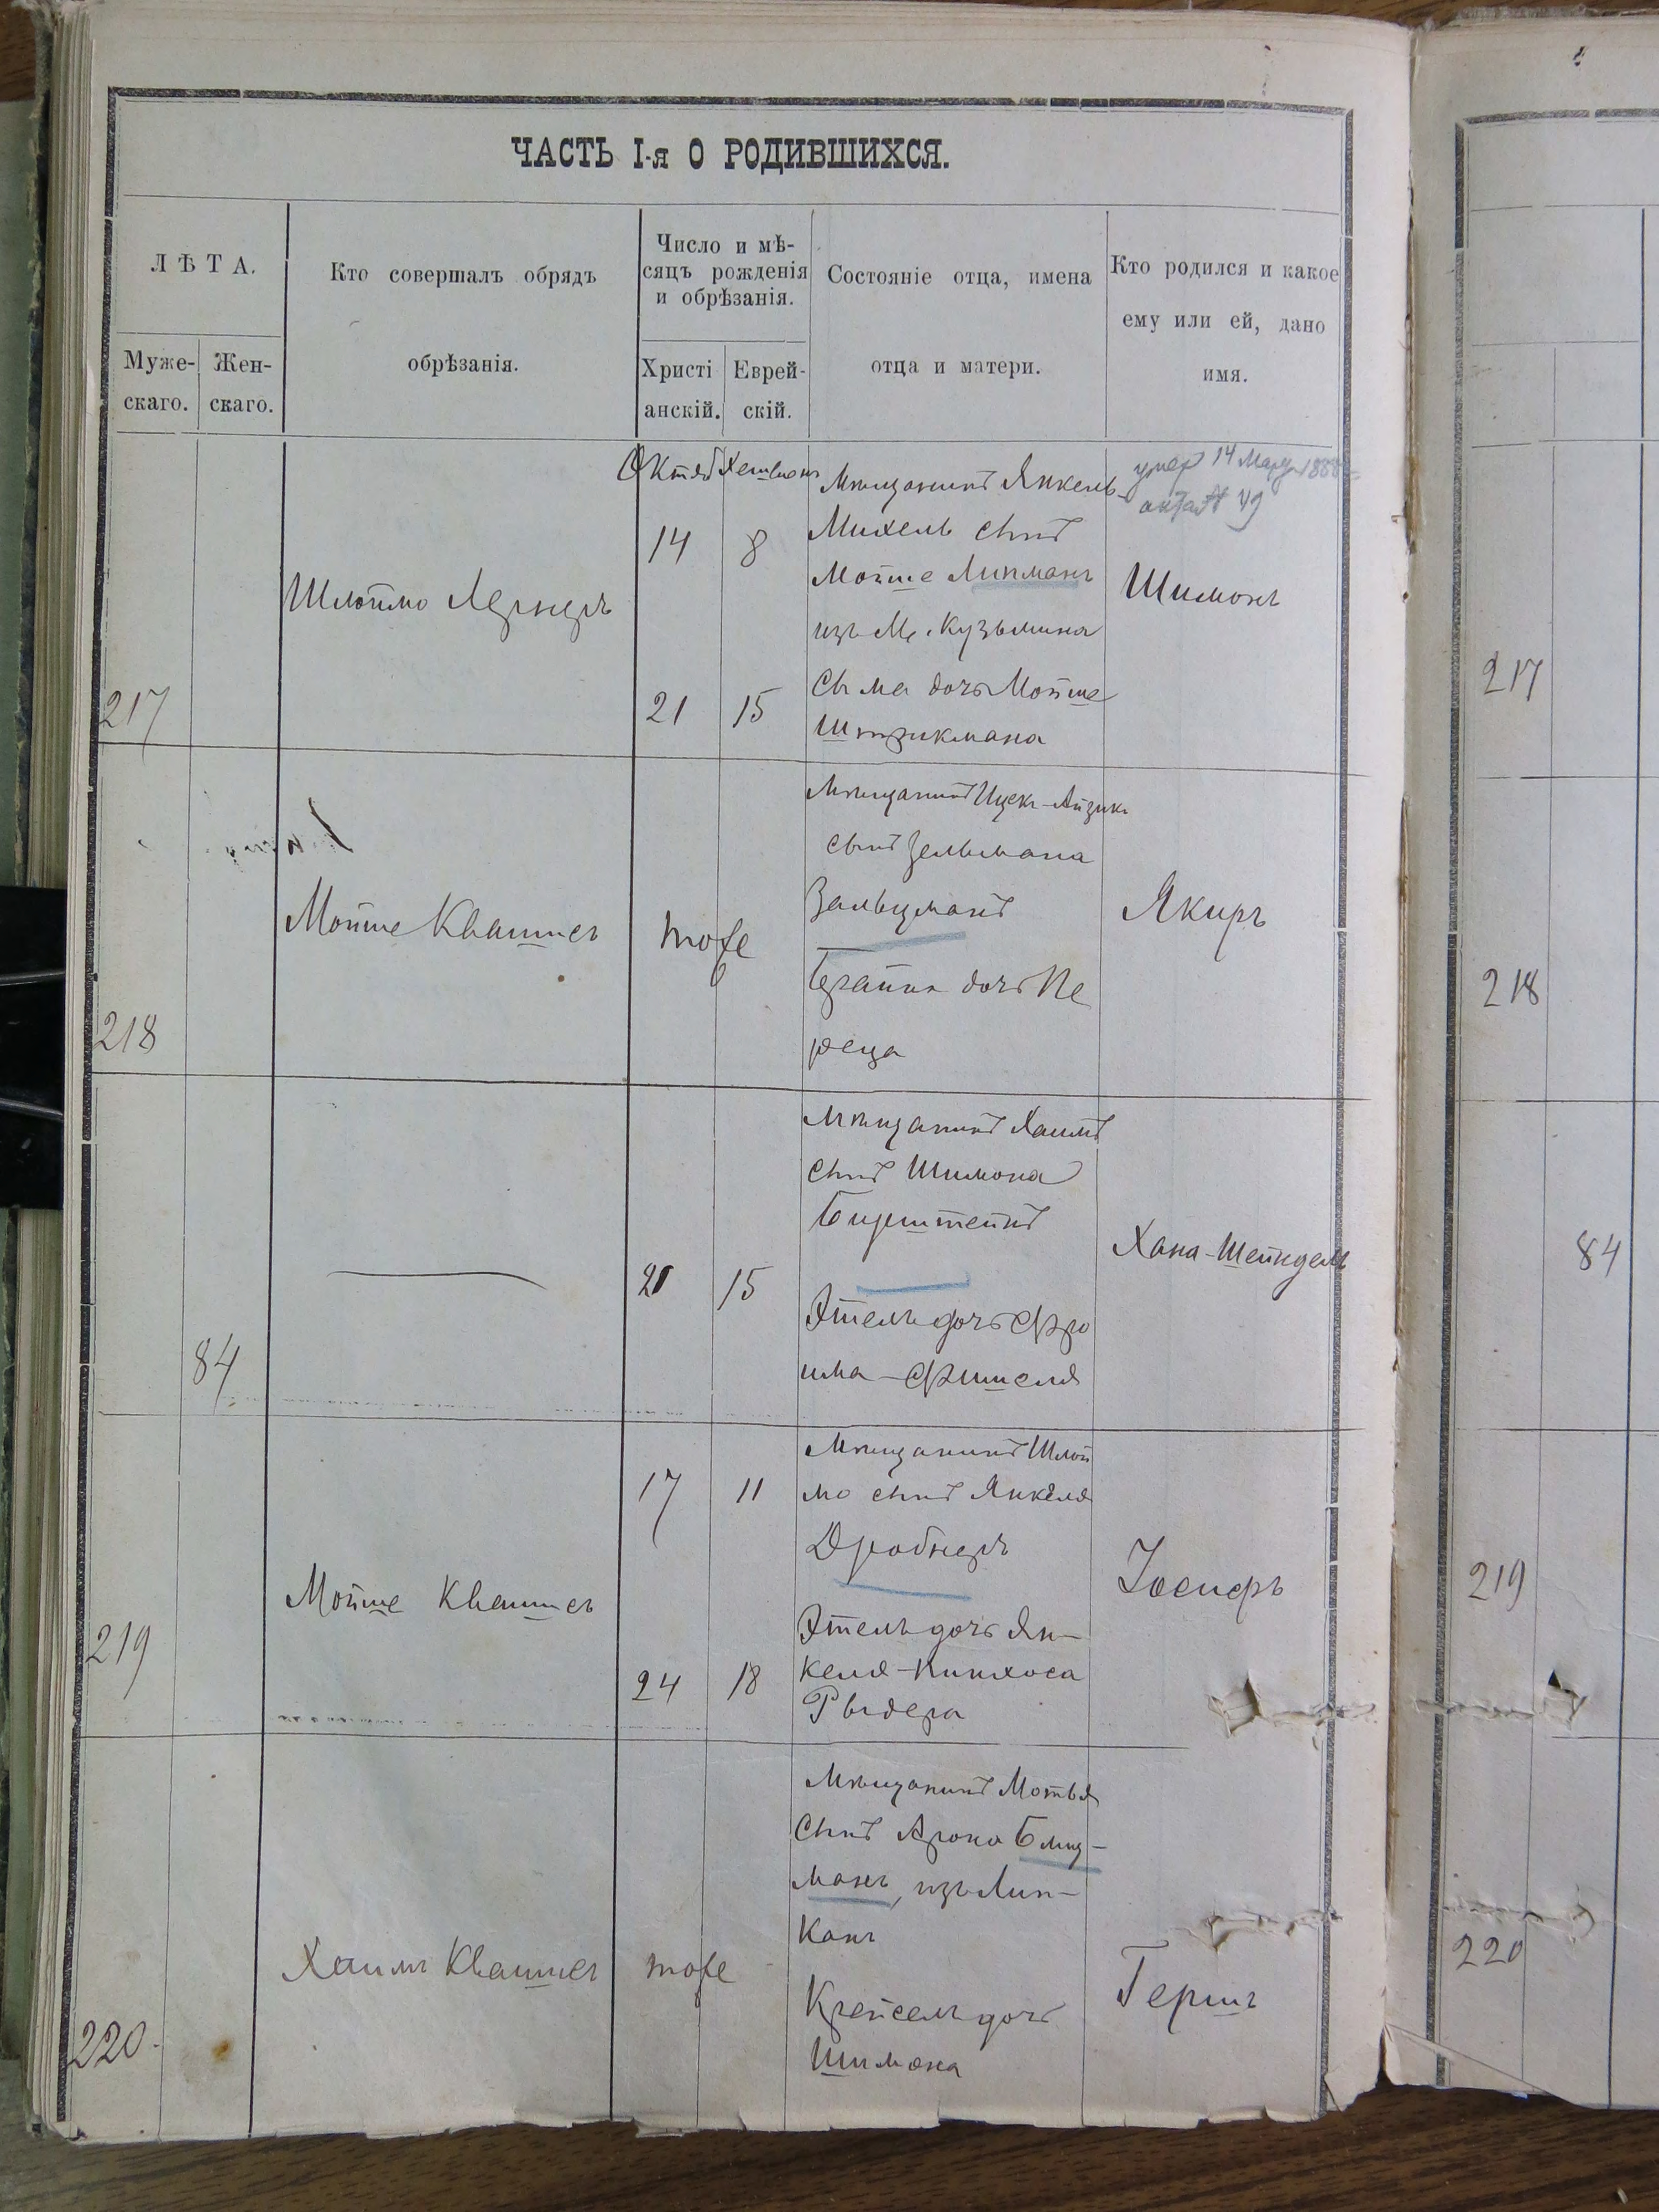 ЧАСТЬ I-я О РОДИВШИХСЯ.
ЛѢТА.
Муже-
скаго.
Жен-
скаго.
Кто совершалъ обрядъ
обрѣзанія.
Число и мѣ-
сяцъ рожденія
и обрѣзанія.
Христі
анскій.
Еврей-
скій.
Состояніе отца, имена
отца и матери.
Кто родился и какое
ему или ей, дано
имя.
217
Шлоймо
Октяб
14
21
8
15
Мѣщанинъ Янкель-
Михель сынъ
Мойше Липманъ
изъ М. Кузьмина
Сыма дочь Мойше
Штрикмана
умер 14 Март 1888
акта № 49
Шимонъ
218
Мойше Квашнеъ
тоже
Мѣщанинъ Ицекъ-Айзикъ
сынъ Зельмана
Зальцманъ
дочь Пе
реца
Якиръ
84
21
15
Мѣщанинъ Хаимъ
сынъ Шимона
Этель дочь Фро
има-Фишеля
Хана-Шейндель
219
Мойше Квашнеъ
17
24
11
18
Мѣщанинъ Шлой
мо сынъ Янкеля
Дробнеръ
Этель дочь Ян-
келя-Пинхоса
Рыдера
Іосифъ
220
Хаимъ Квашнеъ
тоже
Мѣщанинъ Мотья
сынъ Арона
манъ, изъ Лип-
канъ
Крейсель дочь
Шимона
Гершъ
217
218
84
219
220